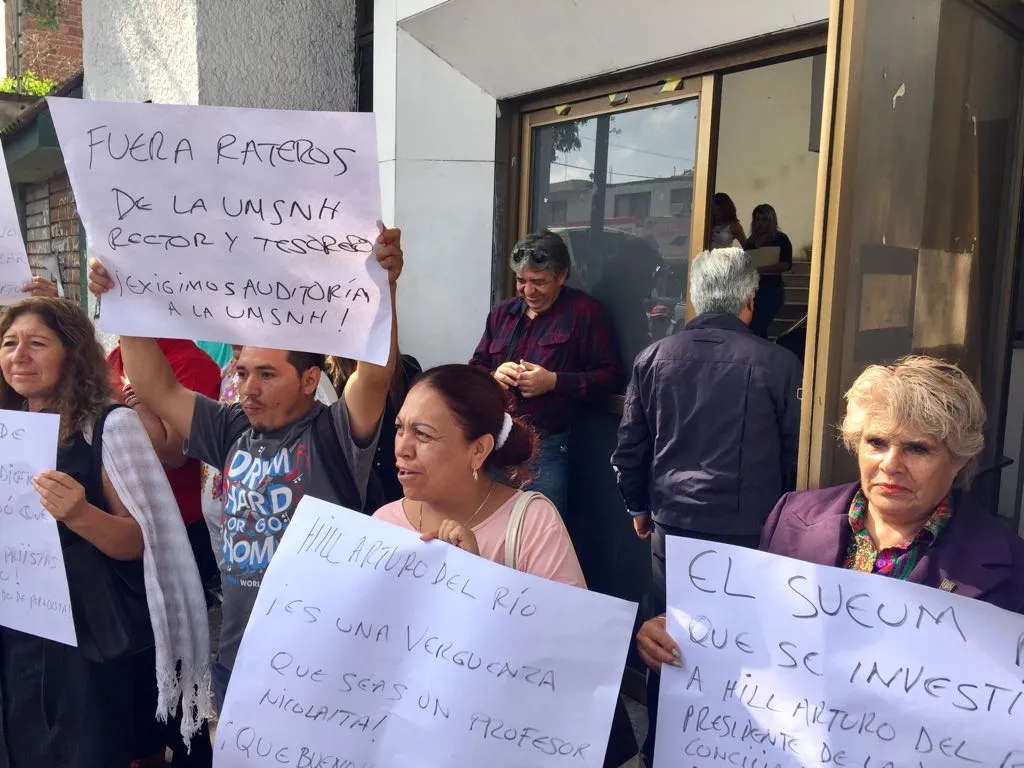 FUERA RATEROS
DE LA UMSNH
RECTOR Y TESORERO
¡EXIGIMOS AUDITORÍA
A LA UMSNH!
DE
QUE
PRIISTAS
DO DE PERIODISTA!
DRINK
HARD
OR GO
HOME
WORL
HILL ARTURO DEL RÍO
¡ES UNA VERGUENZA
QUE SEAS UN PROFESOR
NICOLAITA!
¡QUE BUENO
EL SUEUM
QUE SE INVESTI
A HILL ARTURO DEL
PRESIDENTE DE LA
CONCILIA